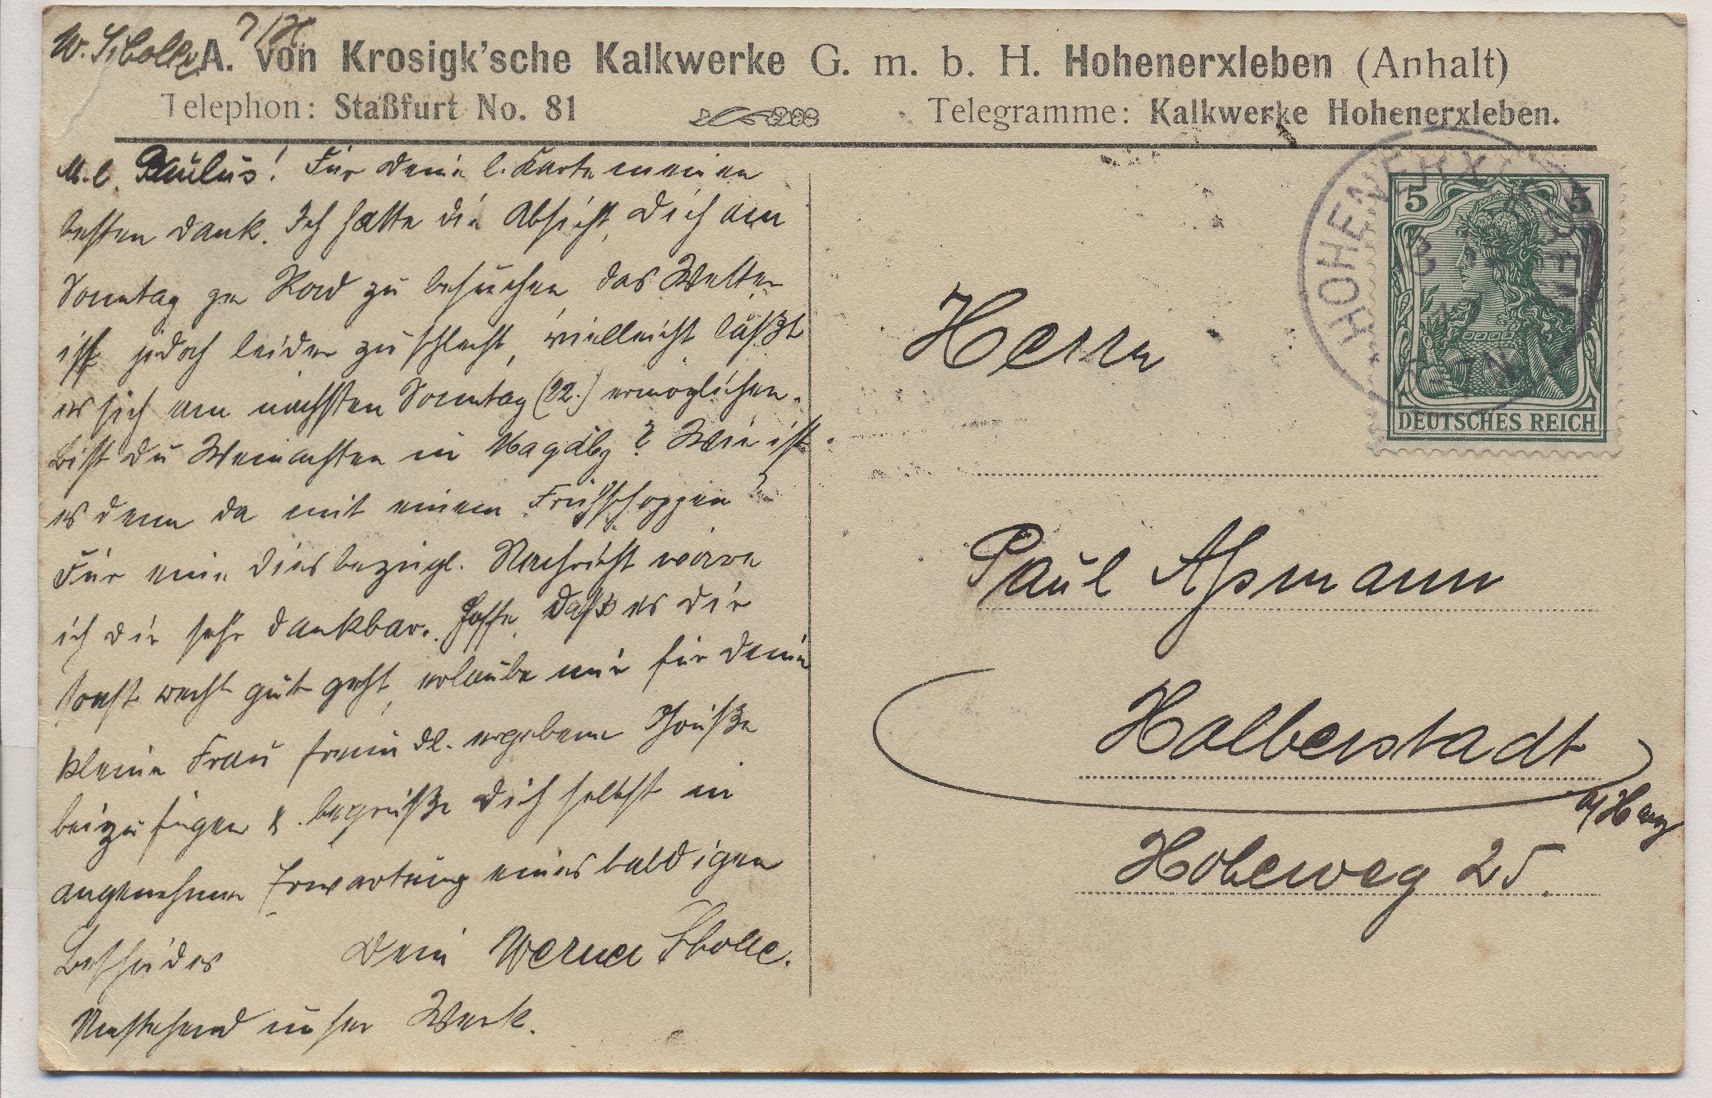 A. von Krosigk'sche Kalkwerke G. m. b. H. Hohenerxleben (Anhalt)
Telephon: Staßfurt No. 81
Telegramme: Kalkwerke Hohenerxleben.
M. l. Paulus! Für deine l. Karte meinen
besten Dank. Ich hatte die Absicht, Dich am
Sonntag per Rad zu besuchen das Wetter
ist jedoch leider zu schlecht, vielleicht läßt
es sich am nächsten Sonntag (22.) ermöglichen.
Bist du Weinachten in Magdbg? Wie ist
es denn da mit einem Frühschoppen?
Für eine diesbezügl. Nachricht wäre
ich dir sehr dankbar. Hoffe, daß es dir
sonst recht gut geht, erlaube mir für deine
kleine Frau freundl. ergebene Grüße
beizufügen & begrüße dich selbst in
angenehmer Erwartung eines baldigen
Bescheides Dein Werner
Umstehend unser Werk.
DEUTSCHES REICH
5 5
Herrn
Paul Aßmann
Halberstadt
a/Harz
Hoheweg 25.